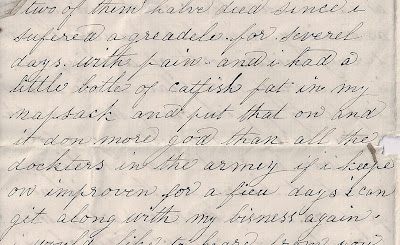 two of them halve died since i
sufired a greadele for severel
days with pain and i had a
little botle of catfish fat in my
napsack and put that on and
it don more good than all the
dockters in the armey if i keepe
on improven for a few days i can
git along with my bisness again
i would like to heare from you